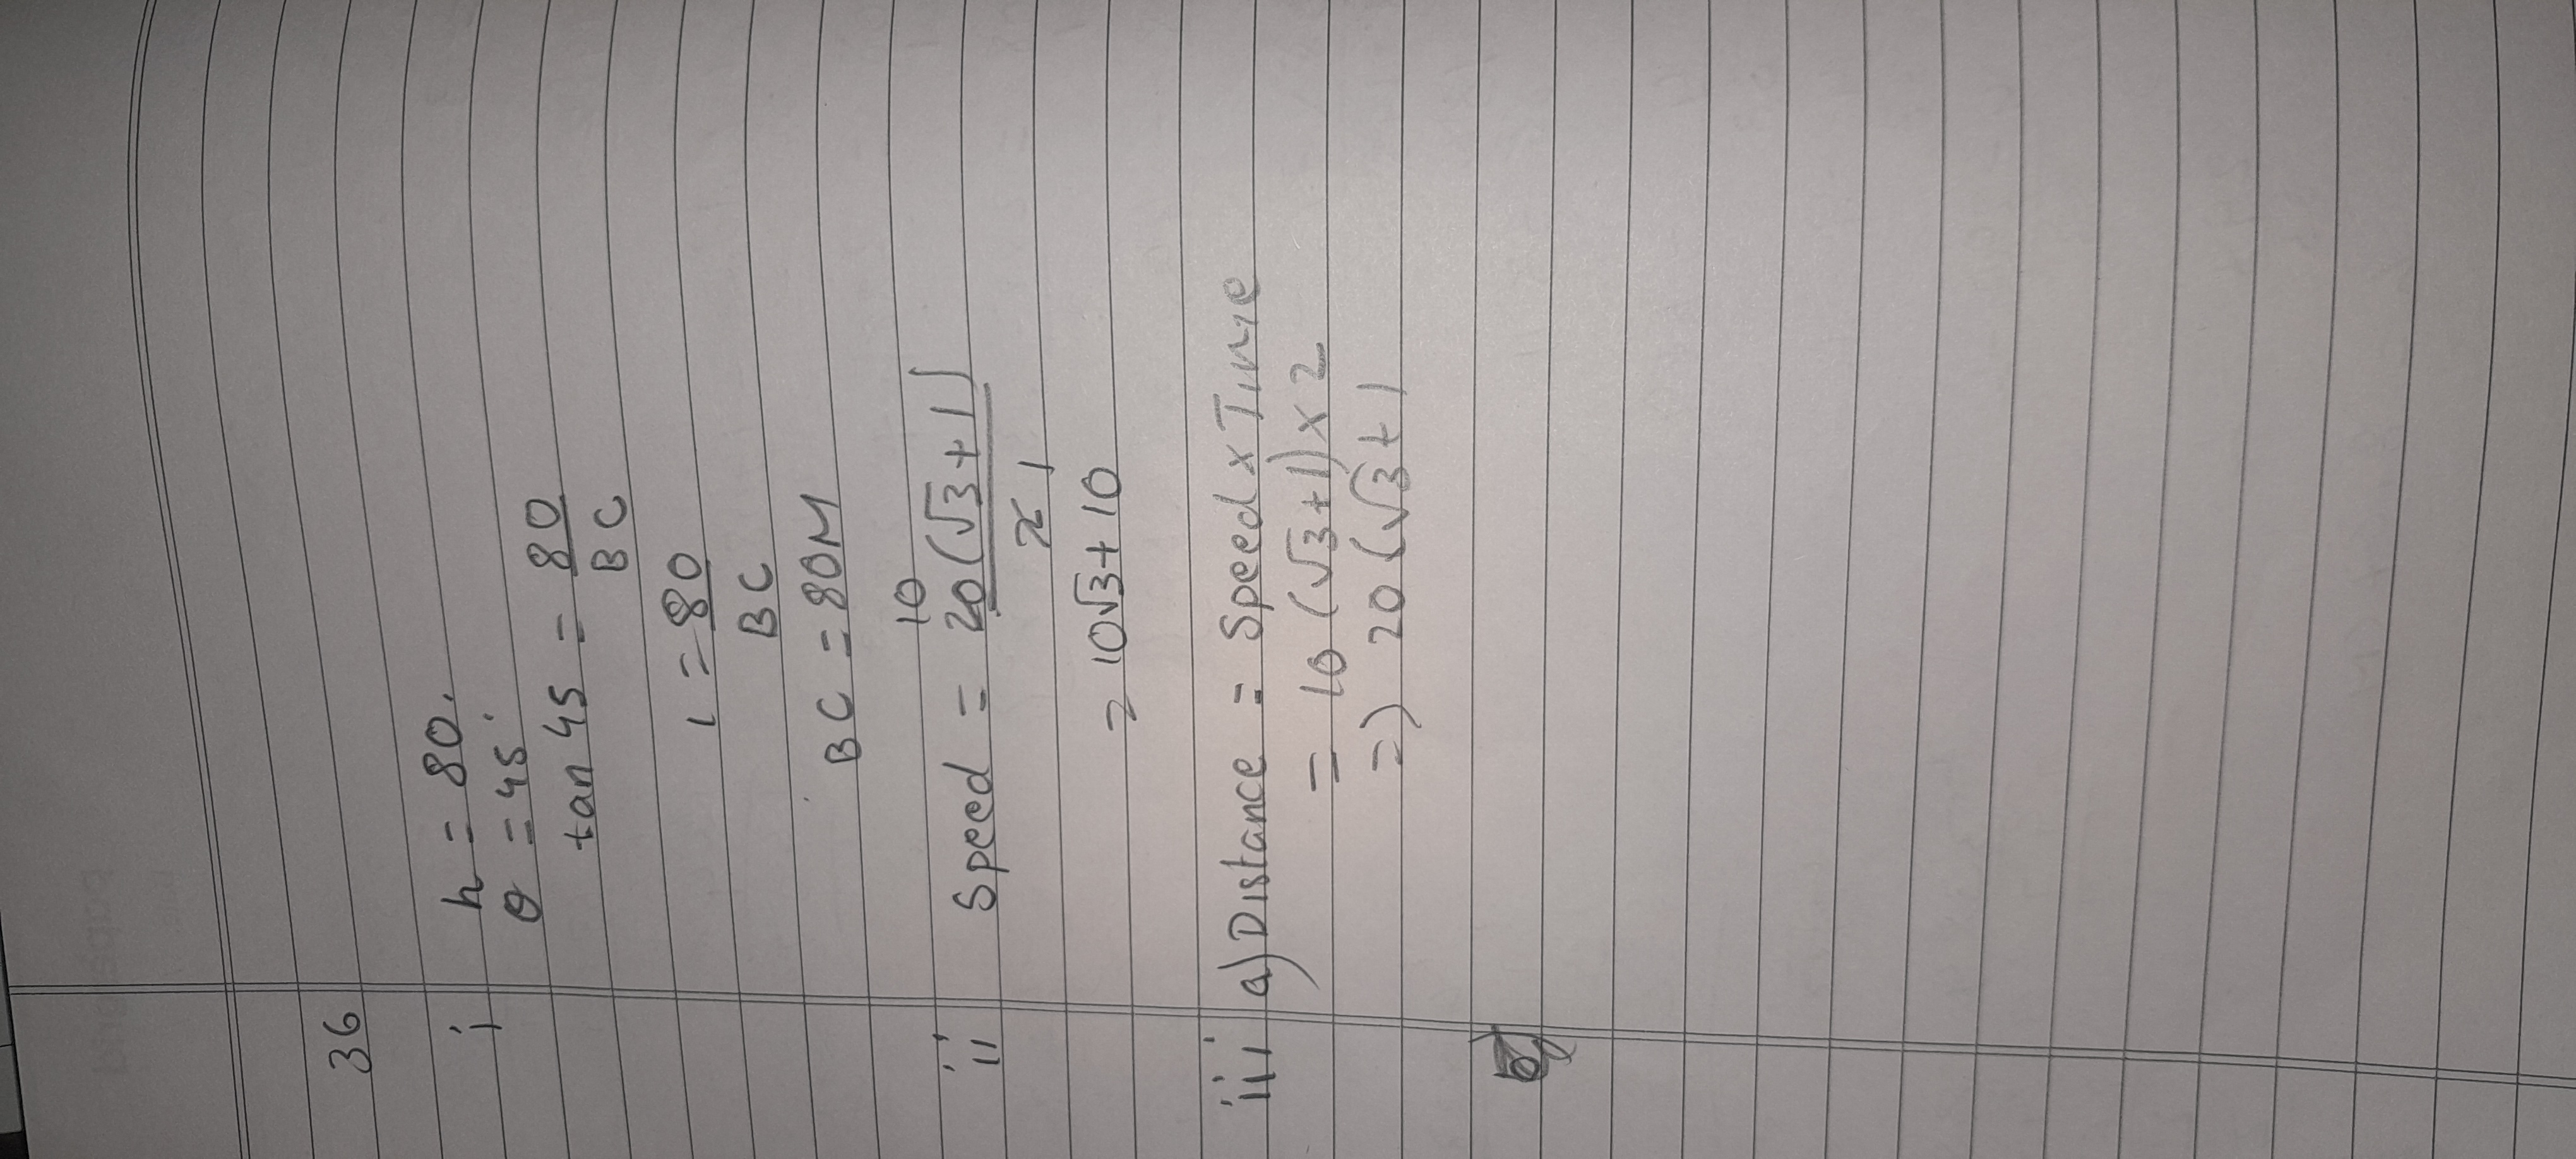 36
i h = 80.
θ = 45°
tan 45 = 80/BC
1 = 80/BC
BC = 80M
10
ii Speed = 20(√3+1)/2 1
= 10√3+10
iii a) Distance = Speed x Time
= 10 (√3+1) x 2
=) 20 (√3+1